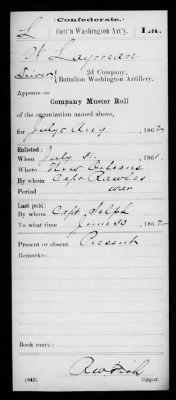 (Confederate.)
L Batt'n Washington Art'y. La.
W Layman
Driver, 2d Company,
Battalion Washington Artillery.
Appears on
Company Muster Roll
of the organization named above,
for July & Aug, 186
Enlisted:
When July 21, 186
Where New Orleans
By whom Capt Rawles
Period war
Last paid:
By whom Capt.
To what time June 30, 186
Present or absent Present
Remarks:
Book mark:
(642) Copyist.